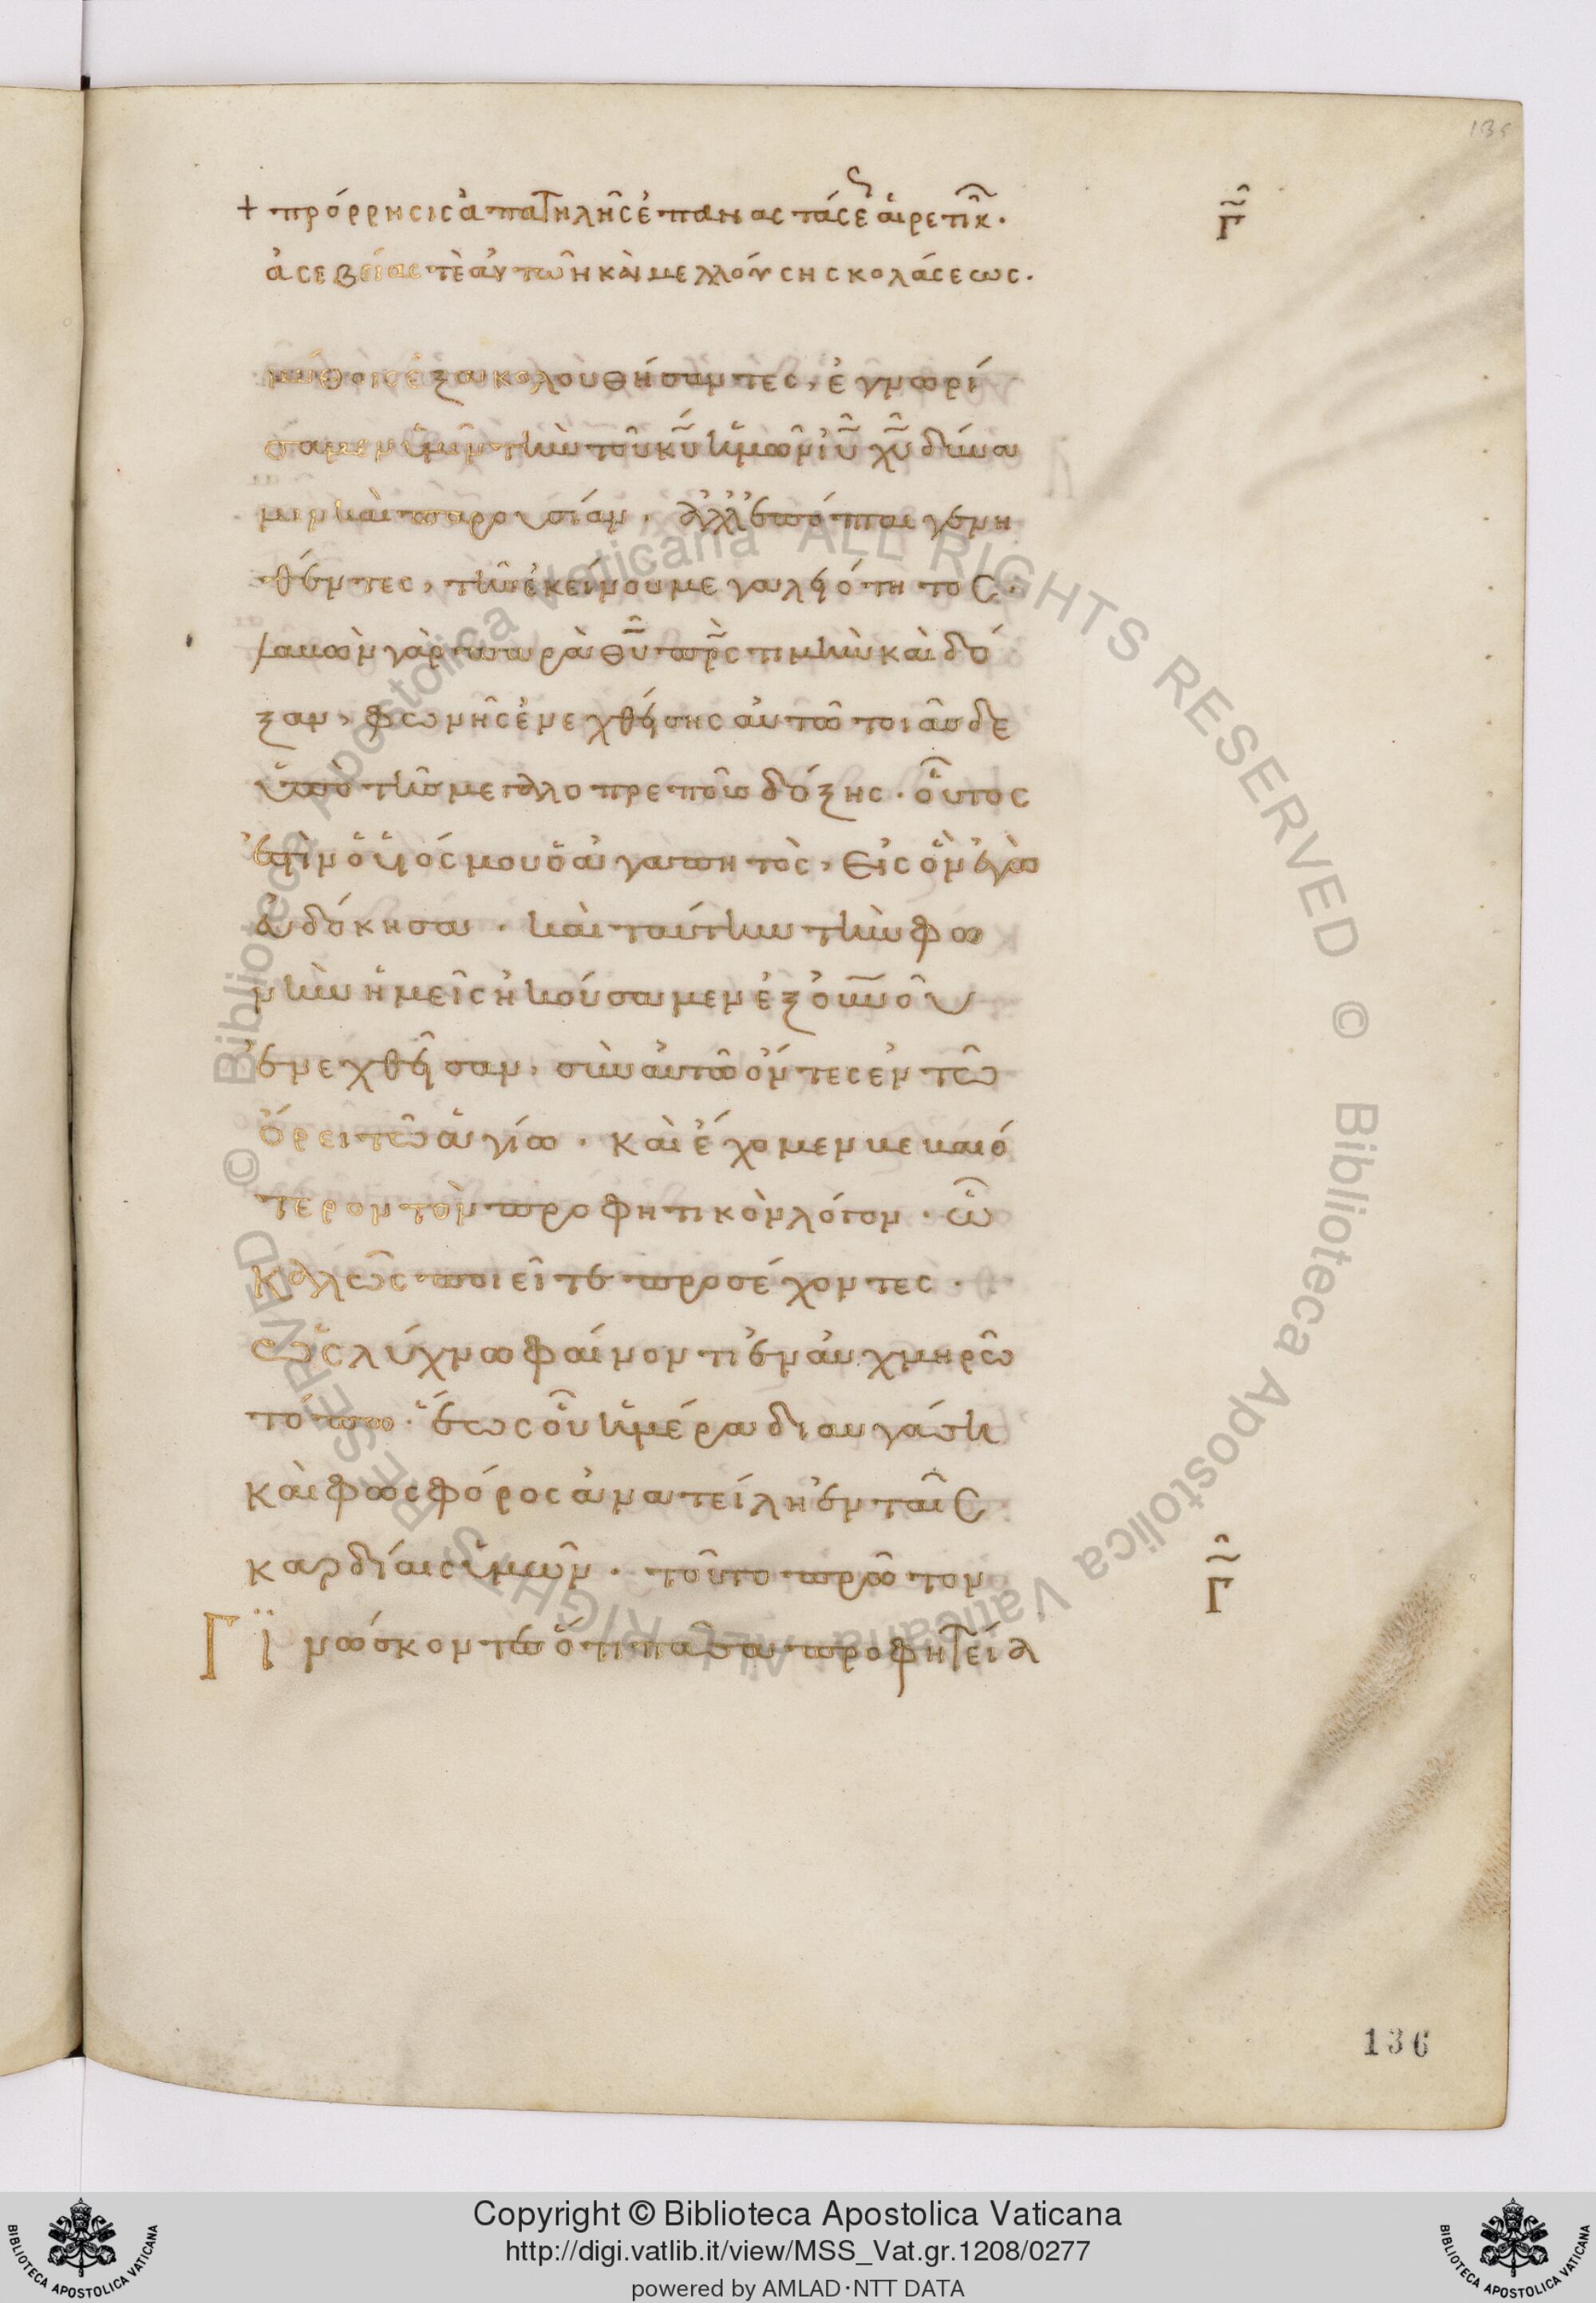 135
+ πρόρρησις ἀπατηλῆς ἐπαναστάσε αἱρετικ. Γ
ἀσεβείας τὲ αὐτῶν καὶ μελλούσης κολάσεως.
μύθοις ἐξακολουθήσαντες, ἐγνωρί
σαμεν ὑμῖν τὴν τοῦ κυ ἡμῶν ιυ χυ δύνα
μιν καὶ παρουσίαν. ἀλλ' ἐπόπται γενη
θέντες, τῆς ἐκείνου μεγαλειότητος.
λαβὼν γὰρ παρὰ θυ πρς τιμὴν καὶ δό
ξαν, φωνῆς ἐνεχθείσης αὐτῶ τοιᾶσδε
ὑπὸ τῆς μεγαλοπρεποῦς δόξης. οὗτος
ἐστὶν ὁ υἱός μου ὁ ἀγαπητὸς, εἰς ὃν ἐγὼ
εὐδόκησα. καὶ ταύτην τὴν φω
νὴν ἡμεῖς ἠκούσαμεν ἐξ οὐνοῦ
ἐνεχθεῖσαν, σὺν αὐτῶ ὄντες ἐν τῶ
ὄρει τῶ ἁγίω. καὶ ἔχομεν βεβαιό
τερον τὸν προφητικὸν λόγον. ὧ
καλῶς ποιεῖτε προσέχοντες.
ὡς λύχνω φαίνοντι ἐν αὐχμηρῶ
τόπω. ἕως οὗ ἡμέρα διαυγάση
καὶ φωσφόρος ἀνατείλη ἐν ταῖς
καρδίαις ὑμῶν. τοῦτο πρῶτον Γ
Γϊνώσκοντες ὅτι πᾶσα προφητεία
136
© Biblioteca Apostolica Vaticana ALL RIGHTS RESERVED © Biblioteca Apostolica Vaticana ALL RIGHTS RESERVED
Copyright © Biblioteca Apostolica Vaticana
http://digi.vatlib.it/view/MSS_Vat.gr.1208/0277
powered by AMLAD·NTT DATA
BIBLIOTECA APOSTOLICA VATICANA
BIBLIOTECA APOSTOLICA VATICANA